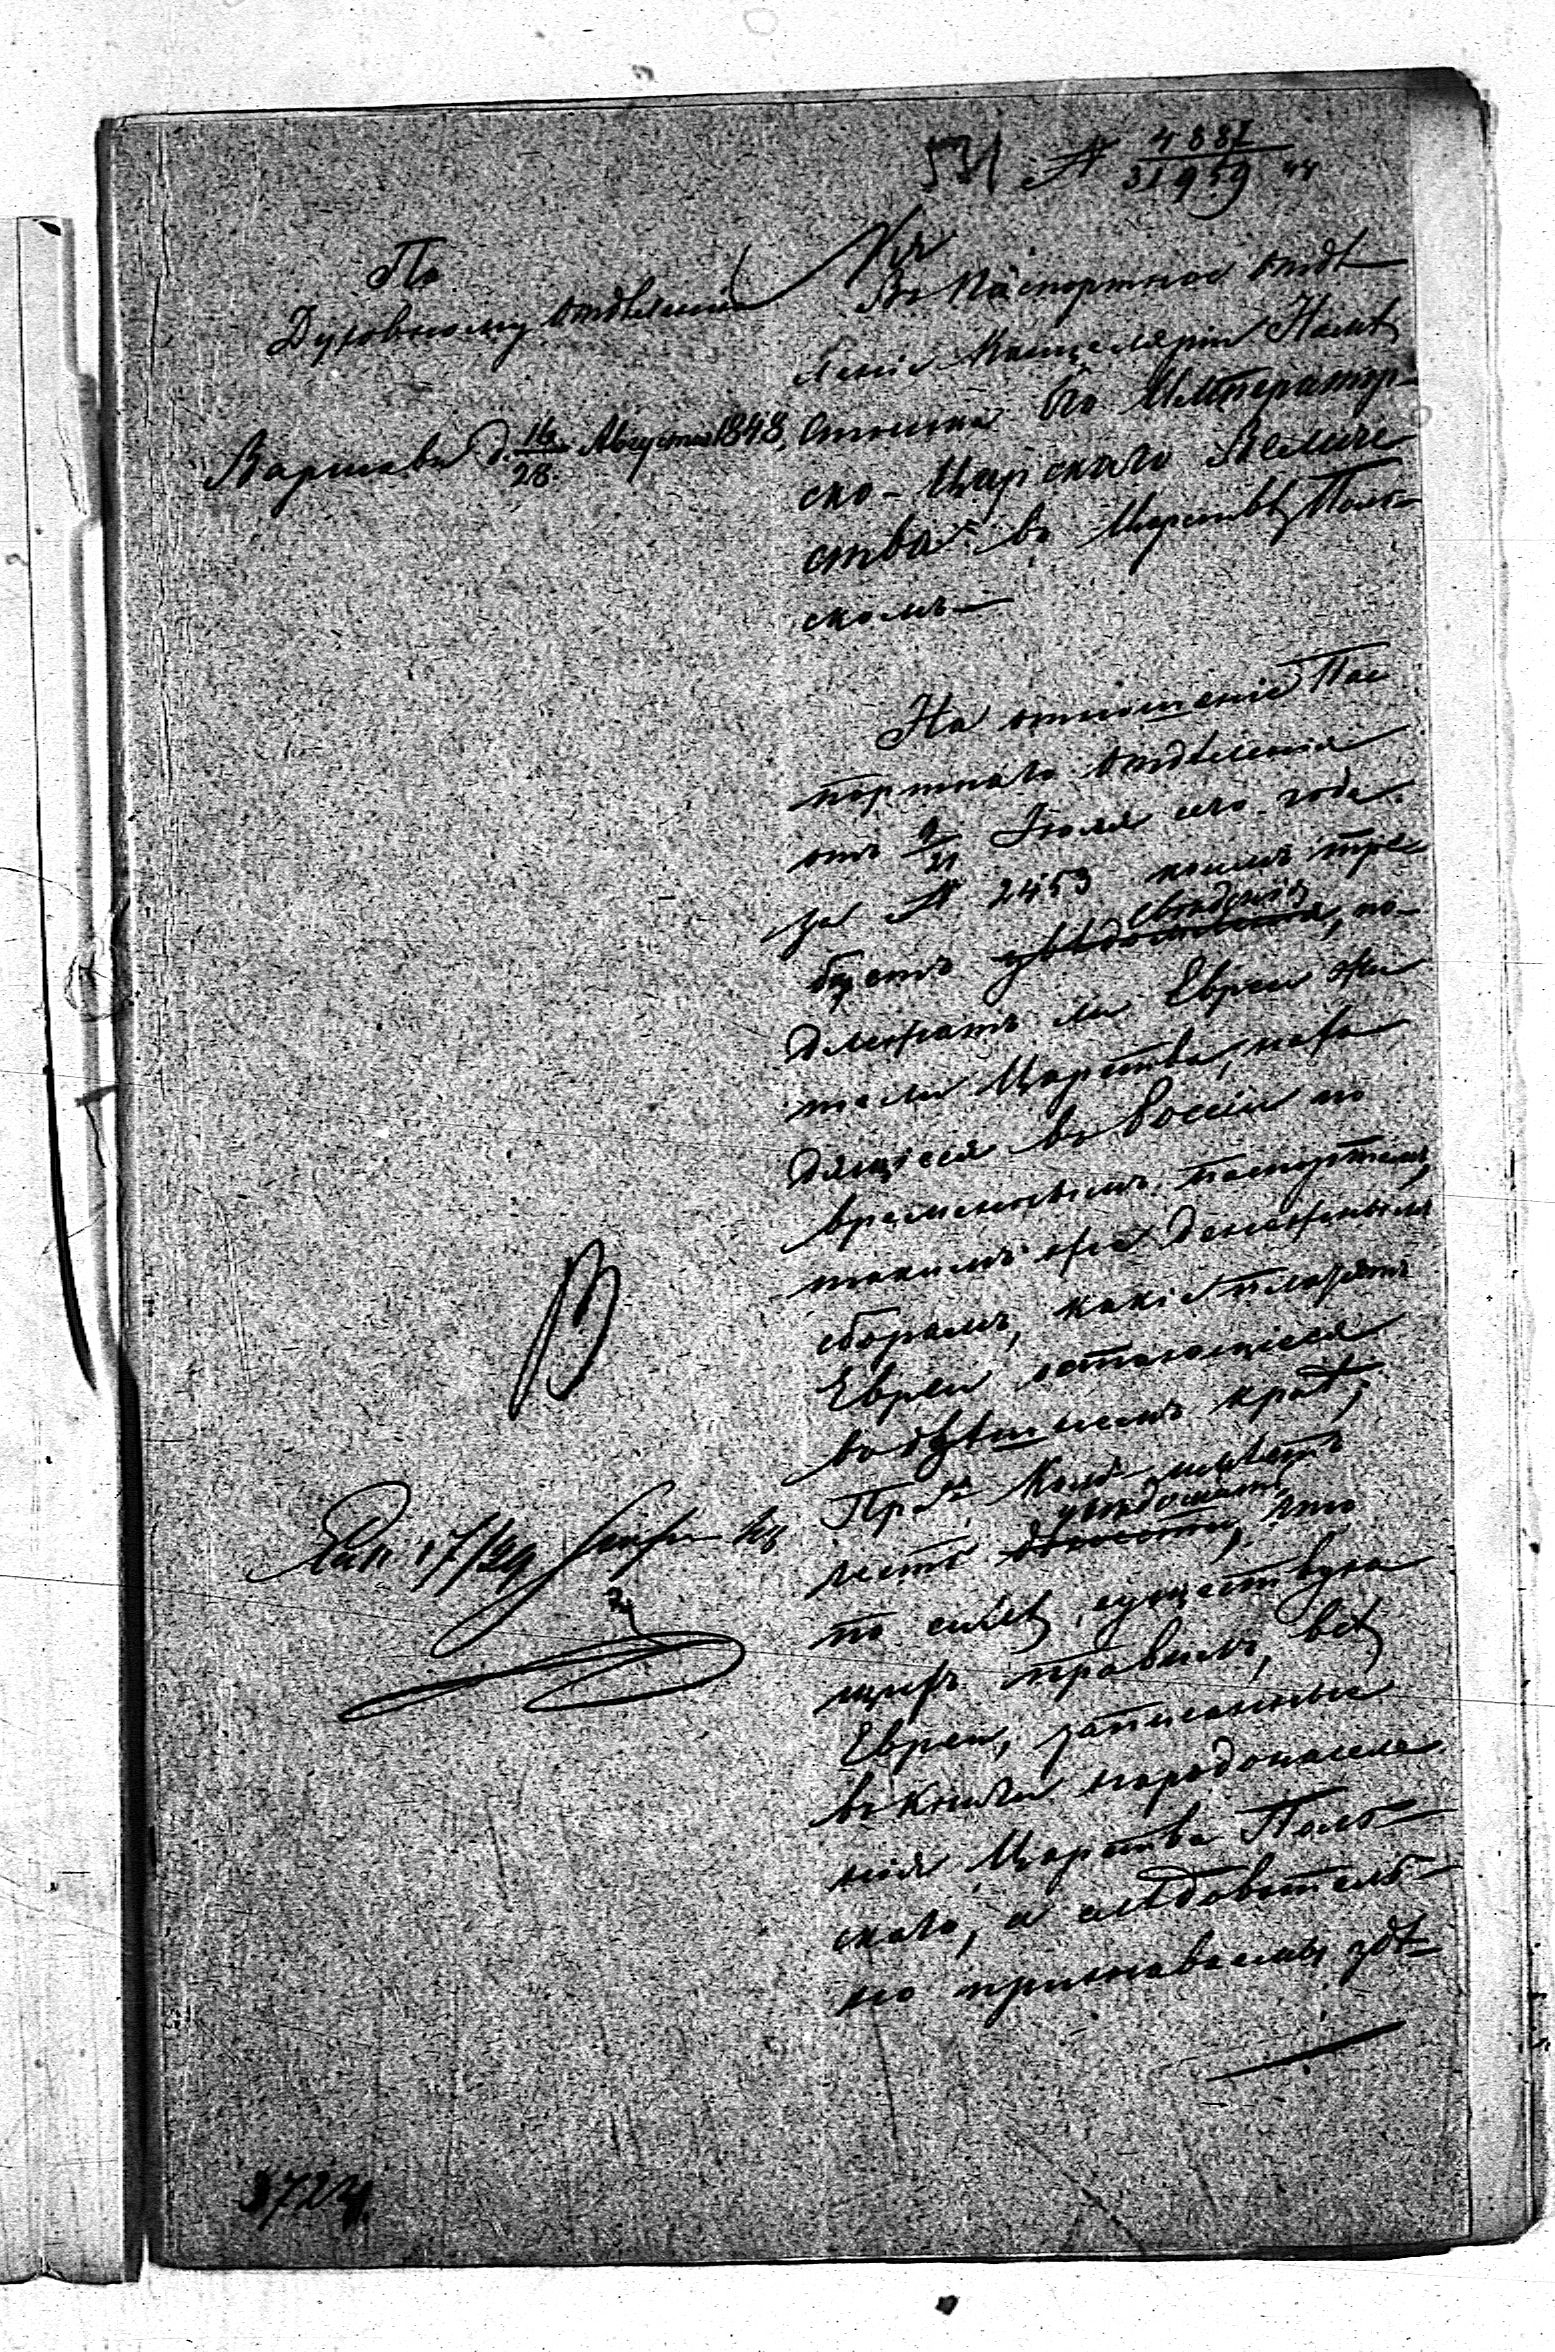 531 № 4881/31959
По
Духовному отделенію
Варшава д. 16/28 Августа 1848.
Въ Паспортное отдѣ-
леніе Канцеляріи Намѣ
стника Его Император-
ско-Царскаго Величе
ства въ Царствѣ Поль-
скомъ
На отношеніе Пас
портнаго отдѣленія
отъ 9/21 Іюля сего года
за № 2453 коимъ тре
буетъ увѣдомленія, по-
свѣдѣнія
длежатъ ли Евреи жи
тели Царства, нахо
дящіеся въ Россіи по
временнымъ паспортамъ,
такимъ же денежнымъ
сборамъ, какіе платятъ
Евреи остающіеся
въ здѣшнемъ краѣ,
Прав. Ком. имѣетъ
честь увѣдомить, что
по силѣ существую
щихъ правилъ, всѣ
Евреи, записанные
въ книги народонаселе
нія Царства Поль-
скаго, а слѣдователь-
но признаваемы здѣ-
17/29
3724.